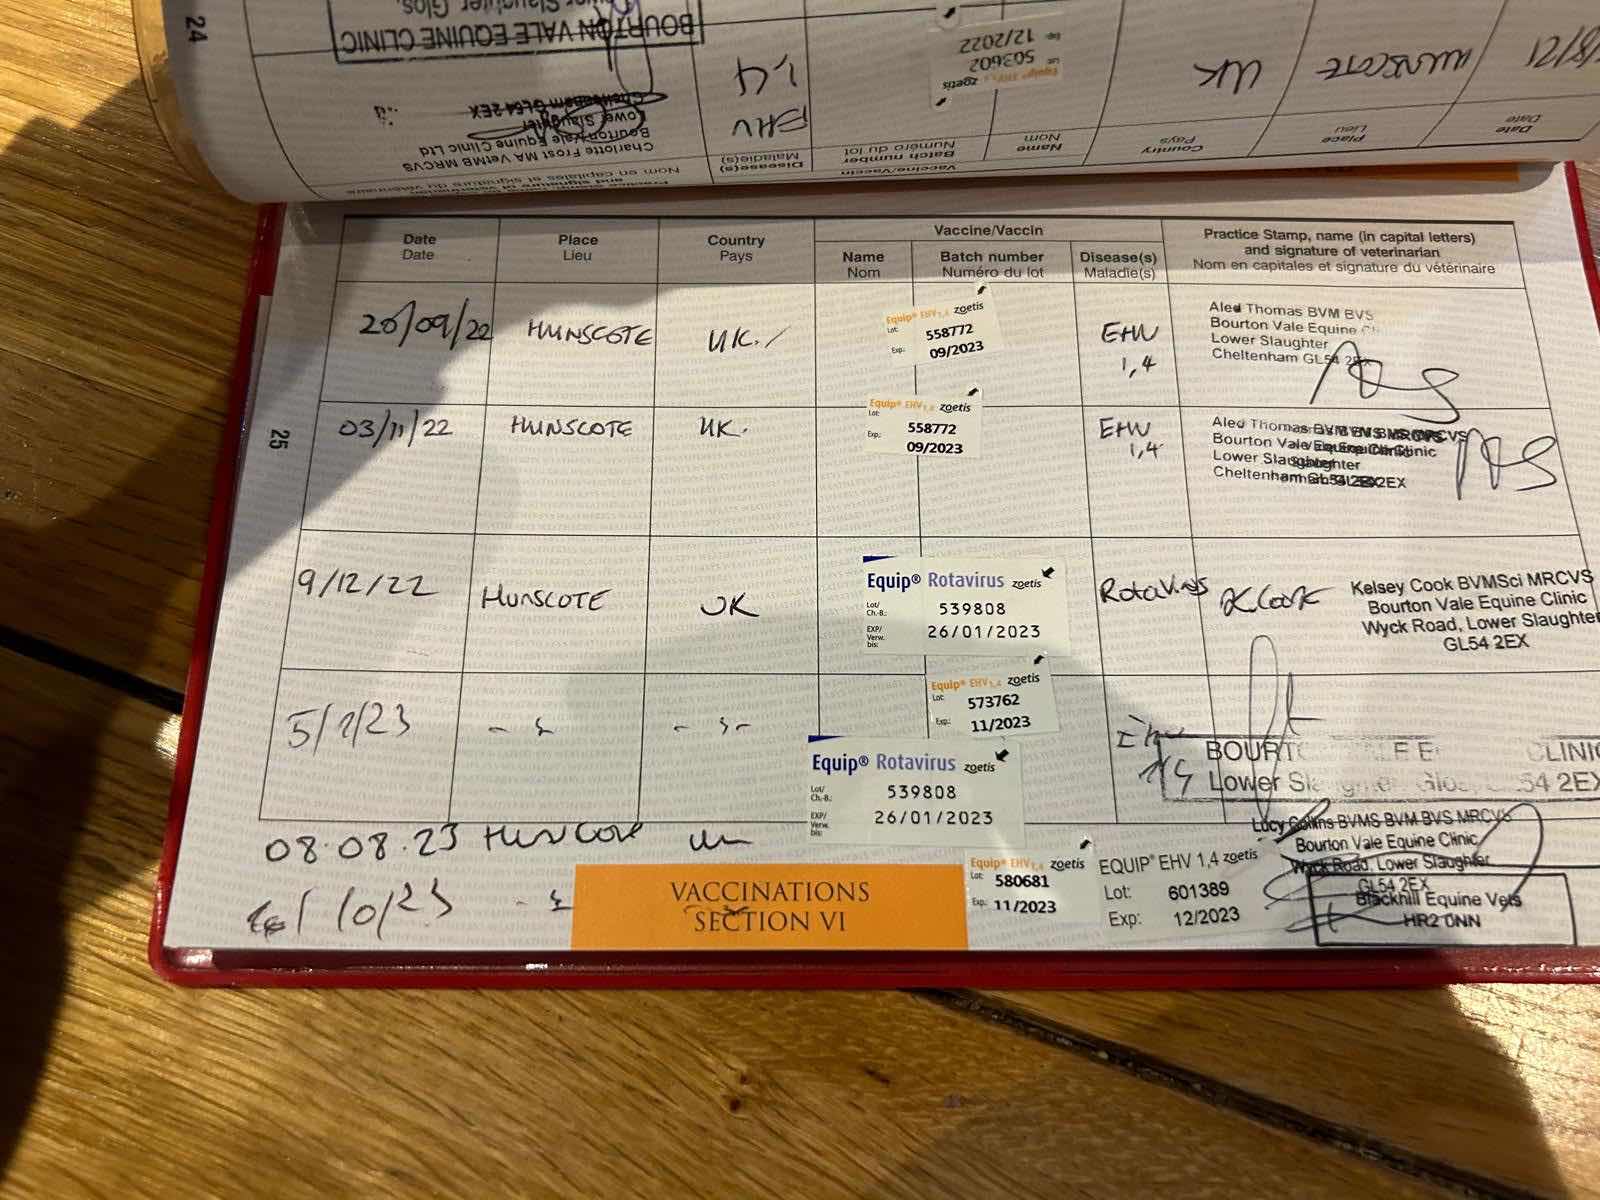 24
BOURTON VALE EQUINE CLINIC
Slaughter Glos.
HUNSCOTE
UK
Equip® EHV 1,4 zoetis
503602
12/2022
EHV
1,4
Charlotte Frost MA VetMB MRCVS
Bourton Vale Equine Clinic Ltd
Lower Slaughter
Cheltenham GL54 2EX
Date
Date
Place
Lieu
Country
Pays
Name
Nom
Vaccine/Vaccin
Batch number
Numéro du lot
Disease(s)
Maladie(s)
and signature of veterinarian
Nom en capitales et signature du vétérinaire
25
Date
Date
Place
Lieu
Country
Pays
Vaccine/Vaccin
Name
Nom
Batch number
Numéro du lot
Disease(s)
Maladie(s)
Practice Stamp, name (in capital letters)
and signature of veterinarian
Nom en capitales et signature du vétérinaire
20/09/22
HUNSCOTE
UK.
Equip® EHV 1,4 zoetis
Lot: 558772
Exp.: 09/2023
EHV
1,4
Aled Thomas BVM BVS
Bourton Vale Equine
Lower Slaughter
Cheltenham GL54 2EX
03/11/22
HUNSCOTE
UK.
Equip® EHV 1,4 zoetis
Lot: 558772
Exp.: 09/2023
EHV
1,4
Aled Thomas BVM BVS MRCVS
Bourton Vale Equine Clinic
Lower Slaughter
Cheltenham GL54 2EX
9/12/22
HUNSCOTE
UK
Equip® Rotavirus zoetis
Lot/ Ch.-B.: 539808
EXP/ Verw. bis: 26/01/2023
Rotavirus
K Cook
Kelsey Cook BVMSci MRCVS
Bourton Vale Equine Clinic
Wyck Road, Lower Slaughter
GL54 2EX
5/1/23
Equip® EHV 1,4 zoetis
Lot: 573762
Exp.: 11/2023
Equip® Rotavirus zoetis
Lot/ Ch.-B.: 539808
EXP/ Verw. bis: 26/01/2023
BOURTON VALE EQUINE CLINIC
Lower Slaughter Glos. GL54 2EX
08.08.23
HUNSCOTE
UK
Equip® EHV 1,4 zoetis
Lot: 580681
Exp.: 11/2023
Lucy Collins BVMS BVM BVS MRCVS
Bourton Vale Equine Clinic
Wyck Road, Lower Slaughter
GL54 2EX
/10/23
EQUIP® EHV 1,4 zoetis
Lot: 601389
Exp: 12/2023
Blackhill Equine Vets
HR2 0NN
VACCINATIONS
SECTION VI